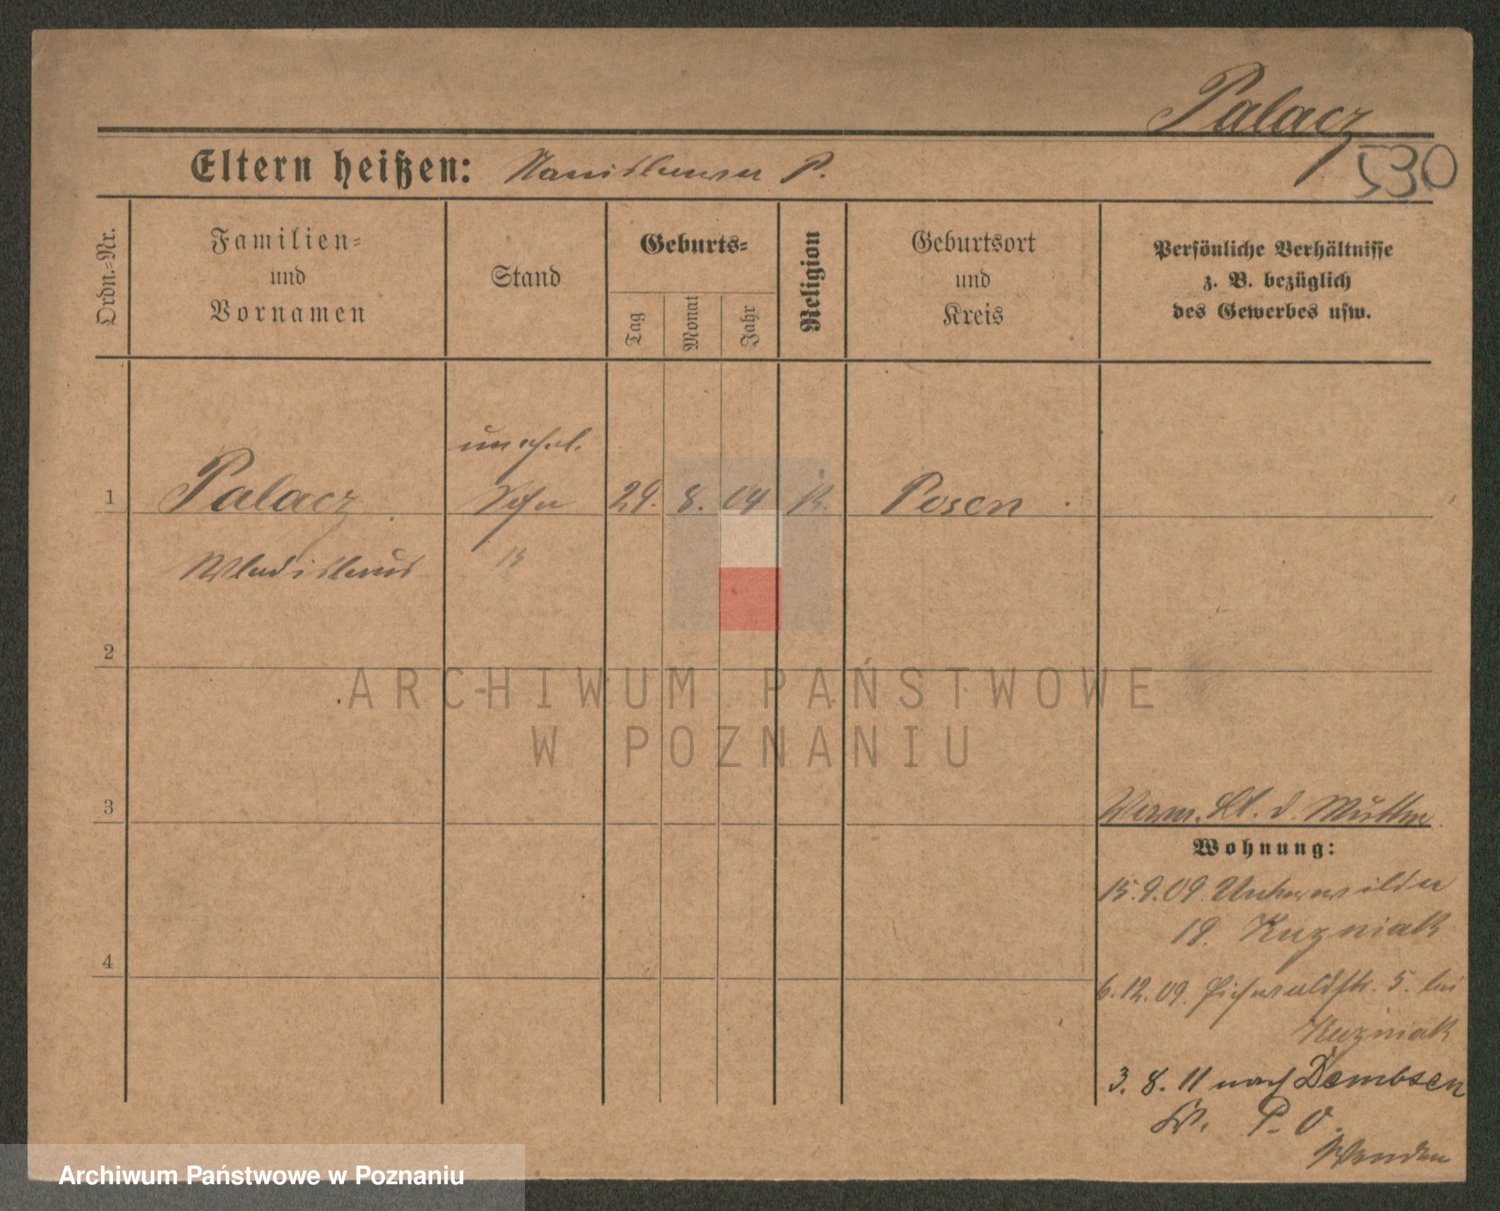 Palacz
530
Eltern heißen: Stanislawa P.
Ordn.=Nr.
Familien=
und
Vornamen
Stand
Geburts=
Tag
Monat
Jahr
Religion
Geburtsort
und
Kreis
Persönliche Verhältnisse
z. B. bezüglich
des Gewerbes usw.
unehel.
1 Palacz Sohn 29. 8. 04 K. Posen
Wladislaus
2
ARCHIWUM PAŃSTWOWE
W POZNANIU
3
Verm. Bl. d. Mutter
Wohnung:
15.9.09. Unterwilda
19. Kuzniak
4
6.12.09. Eichwaldstr. 5. bei
Kuzniak
3. 8. 11 nach Dembsen
Kr. P. O.
Archiwum Państwowe w Poznaniu